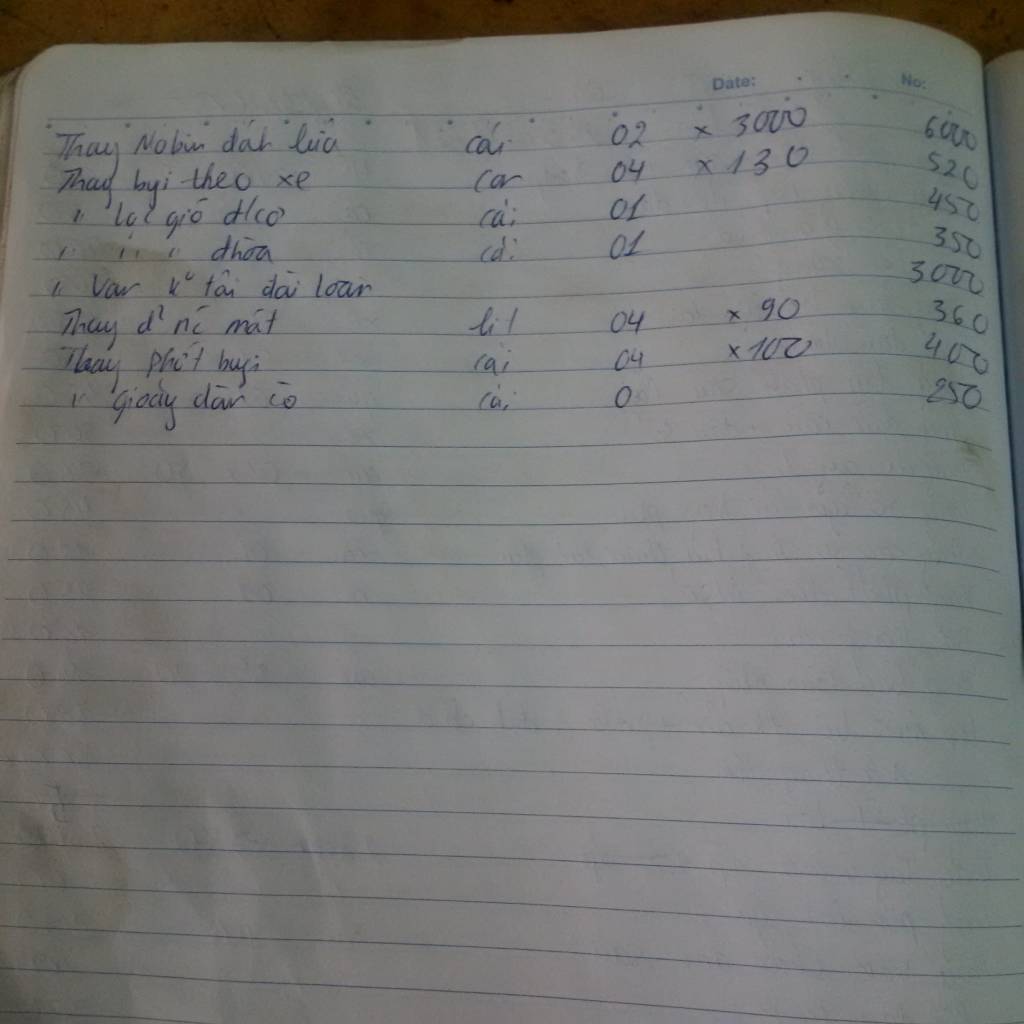 Date: No:
Thay Mobin đáh lửa cái 02 x 3000 6000
Thay bygi theo xe con 04 x 130 520
" lọc gió đ/cơ cái 01 450
" " " đhòa cái 01 350
" Van k² tải đài loan 3000
Thay d² nc mát lit 04 x 90 360
Thay phớt bugi cái 04 x 100 400
" gioăy dàn cò cái 0 250